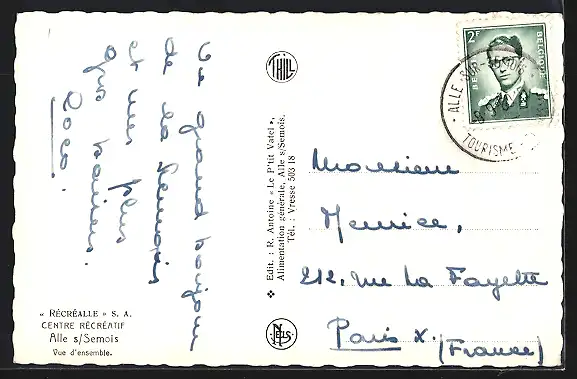 Un grand bonjour
de la Semois
et mes plus
gros baisers.
« RÉCRÉALLE » S. A.
CENTRE RÉCRÉATIF
Alle s/Semois
Vue d'ensemble.
THILL
NELS
Edit. : R. Antoine « Le P'tit Vatel »,
Alimentation générale, Alle s/Semois.
Tél. : Vresse 503 18
2F
BELGIQUE
BELGIE
ALLE-SUR-SEMOIS
TOURISME
Monsieur
Mernice,
212, rue La Fayette
Paris X.
(France)